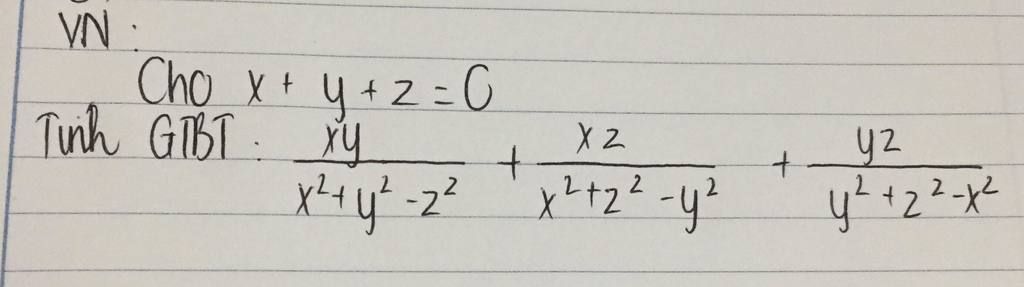 VN :
Cho x + y + z = 0
Tính GTBT : xy/(x²+y²-z²) + xz/(x²+z²-y²) + yz/(y²+z²-x²)